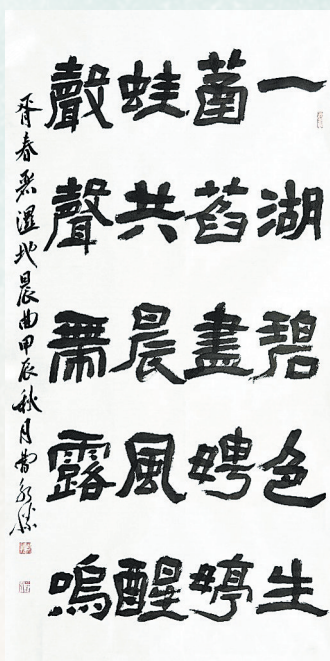 一湖碧色生
菡萏盡娉婷
蛙共晨風醒
聲聲帶露鳴
胥春湿地晨曲甲辰秋月曹